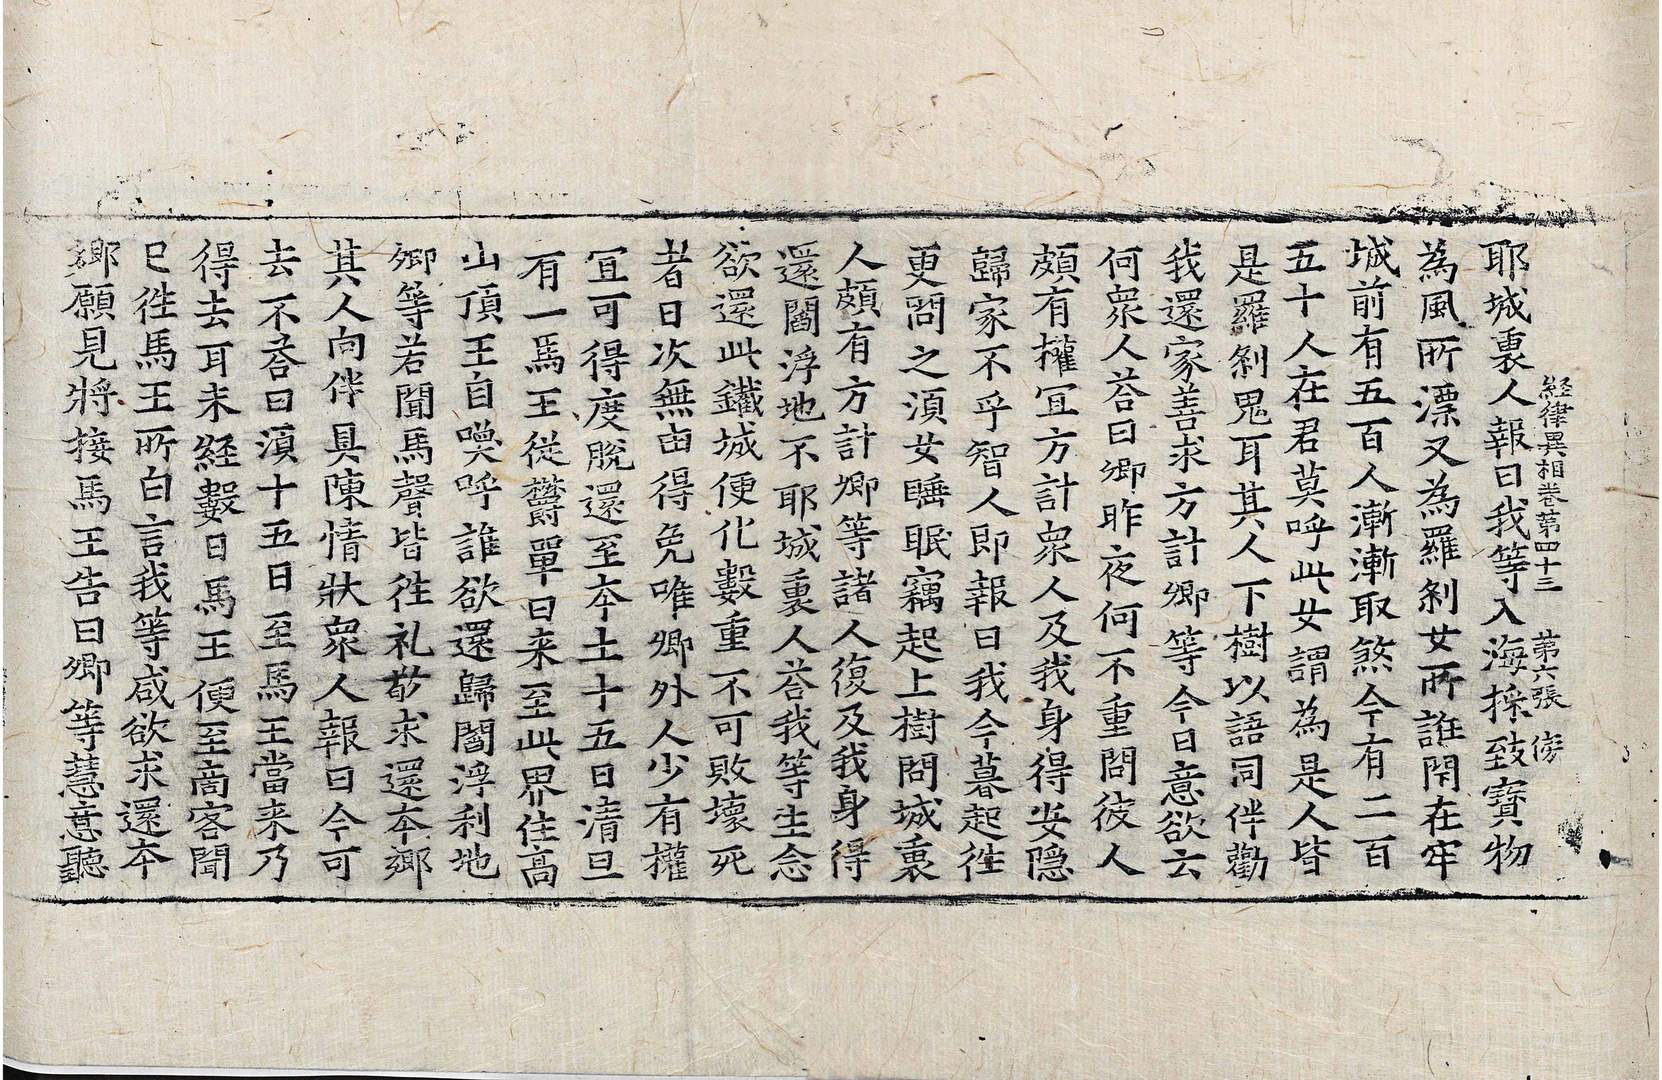 経律異相卷第四十三 第六張 傍
耶城裏人報曰我等入海採致寳物
為風所漂又為羅刹女所誑閇在牢
城前有五百人漸漸取煞今有二百
五十人在君莫呼此女謂為是人皆
是羅刹鬼耳其人下樹以語同伴勸
我還家善求方計卿等今日意欲云
何衆人荅曰卿昨夜何不重問彼人
頗有權冝方計衆人及我身得安隱
歸家不乎智人即報曰我今暮起徃
更問之須女睡眠竊起上樹問城裏
人頗有方計卿等諸人復及我身得
還閻浮地不耶城裏人荅我等生念
欲還此鐵城便化數重不可敗壞死
者日次無卣得免唯卿外人少有權
冝可得度脫還至夲土十五日清旦
有一馬王從欝單曰来至此界住高
山頂王自喚呼誰欲還歸閻浮利地
卿等若聞馬聲皆徃礼敬求還夲鄉
其人向伴具陳情狀衆人報曰今可
去不荅曰須十五日至馬王當来乃
得去耳未経數日馬王便至啇客聞
已徃馬王所白言我等咸欲求還夲
鄉願見將接馬王告曰卿等慧意聽